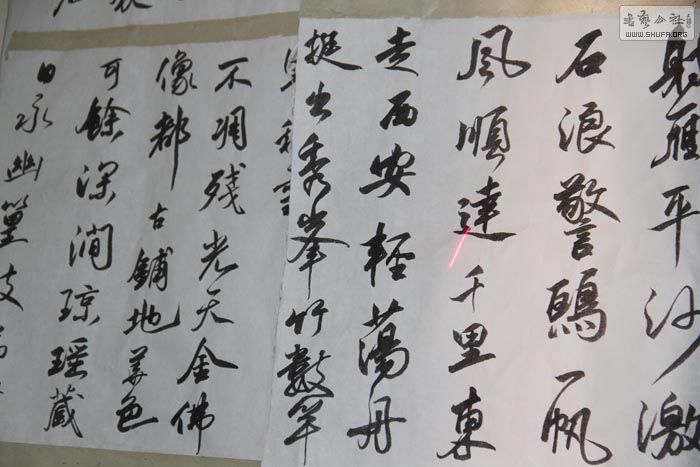 射雁平沙激
石浪警鷗一帆
風順達千里東
走西安輕蕩舟
挺出秀峯竹數竿
不凋残光天金佛
像都古鋪地美色
可餘深澗琼瑶藏
日永幽篁支
书艺公社
WWW.SHUFA.ORG